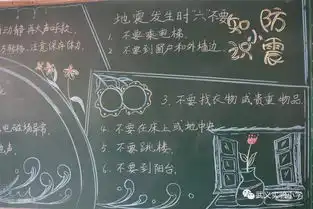 地震发生时六不要
1. 不要乘电梯.
2. 不要到窗户和外墙边.
3. 不要找衣物或贵重物品
4. 不要在床上或地中央
5. 不要跳楼.
6. 不要到阳台.
防震
小知识
动静再大声呼救.
注意保存体力.
电磁场异常.
地声.
武义实验小学